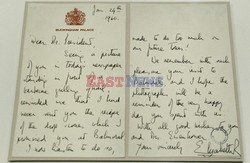 BUCKINGHAM PALACE
Jan. 24th
1960.
Dear Mr. President
Seeing a picture
of you in today's newspaper
standing in front of a
barbecue grilling quail,
reminded me that I had
never sent you the recipe
of the drop scones which I
promised you at Balmoral.
I now hasten to do so,
EAST NEWS
made to do too much on
an future tour!
We remember with such
pleasure your visit to
and I hope the
photograph will be a
reminder of the very happy
day you spent with us.
With all good wishes to you
and Mrs. Eisenhower.
Yours sincerely
Elizabeth R